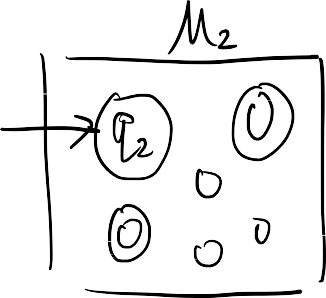 M₂
q₂